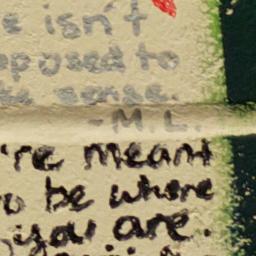 e isn't
pposed to
ke sense.
-M.L.
're meant
o be where
you are.